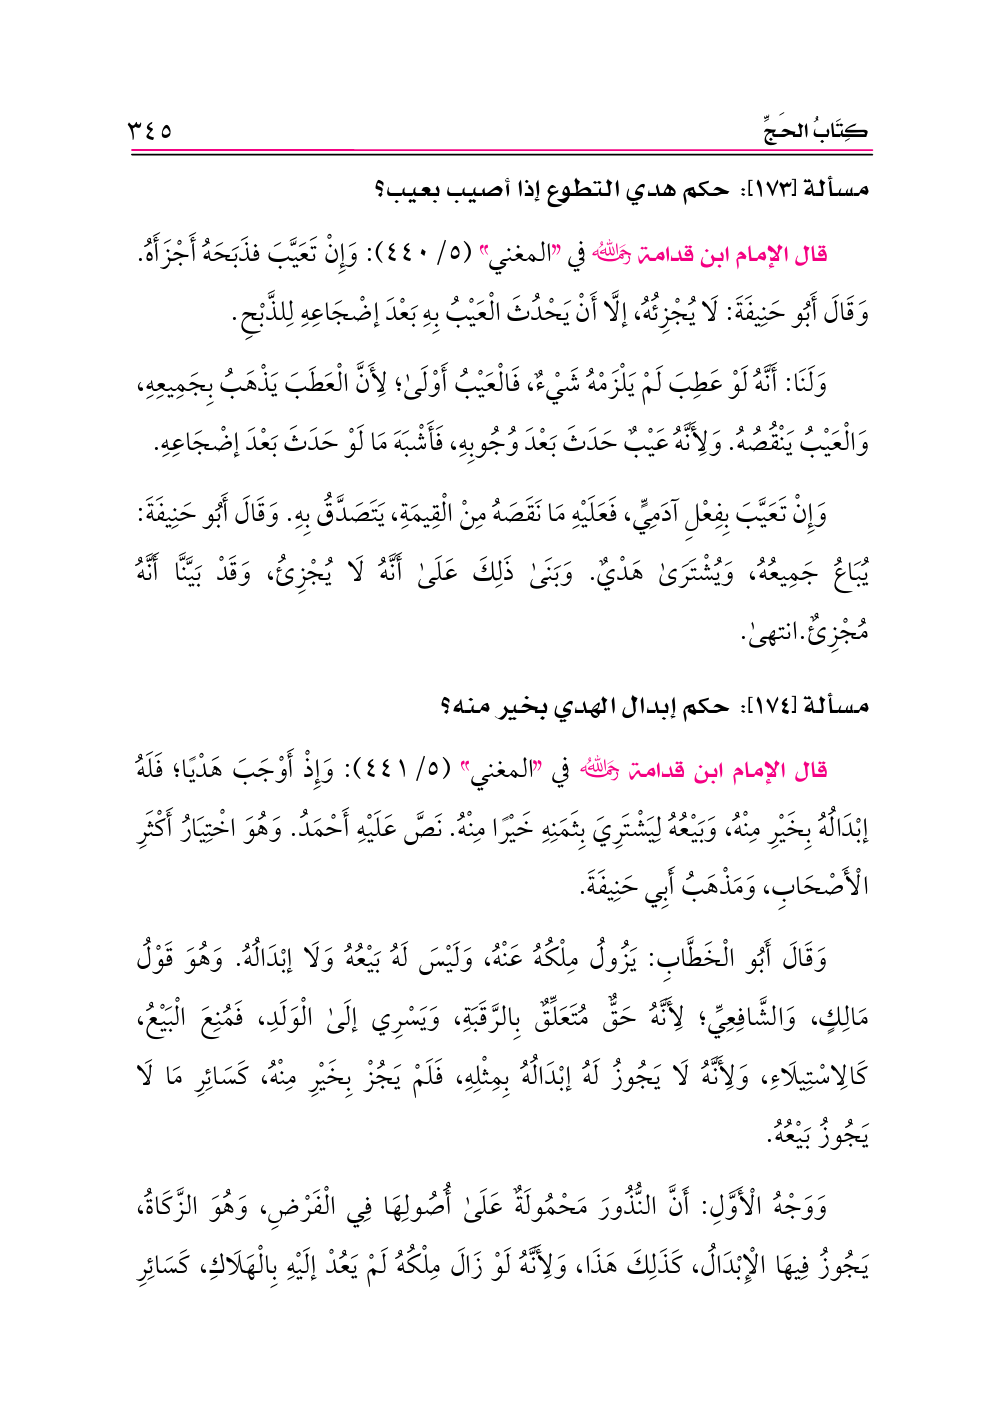 كِتَابُ الحَجِّ
٣٤٥
مسألة [١٧٣]: حكم هدي التطوع إذا أصيب بعيب؟
قال الإمام ابن قدامة رحمه الله في "المغني" (٥/ ٤٤٠): وَإِنْ تَعَيَّبَ فذَبَحَهُ أَجْزَأَهُ.
وَقَالَ أَبُو حَنِيفَةَ: لَا يُجْزِئُهُ، إلَّا أَنْ يَحْدُثَ الْعَيْبُ بِهِ بَعْدَ إضْجَاعِهِ لِلذَّبْحِ.
وَلَنَا: أَنَّهُ لَوْ عَطِبَ لَمْ يَلْزَمْهُ شَيْءٌ، فَالْعَيْبُ أَوْلَىٰ؛ لِأَنَّ الْعَطَبَ يَذْهَبُ بِجَمِيعِهِ،
وَالْعَيْبُ يَنْقُصُهُ. وَلِأَنَّهُ عَيْبٌ حَدَثَ بَعْدَ وُجُوبِهِ، فَأَشْبَهَ مَا لَوْ حَدَثَ بَعْدَ إضْجَاعِهِ.
وَإِنْ تَعَيَّبَ بِفِعْلِ آدَمِيٍّ، فَعَلَيْهِ مَا نَقَصَهُ مِنْ الْقِيمَةِ، يَتَصَدَّقُ بِهِ. وَقَالَ أَبُو حَنِيفَةَ:
يُبَاعُ جَمِيعُهُ، وَيُشْتَرَىٰ هَدْيٌ. وَبَنَىٰ ذَلِكَ عَلَىٰ أَنَّهُ لَا يُجْزِئُ، وَقَدْ بَيَّنَّا أَنَّهُ
مُجْزِئٌ.انتهىٰ.
مسألة [١٧٤]: حكم إبدال الهدي بخير منه؟
قال الإمام ابن قدامة رحمه الله في "المغني" (٥/ ٤٤١): وَإِذْ أَوْجَبَ هَدْيًا؛ فَلَهُ
إبْدَالُهُ بِخَيْرِ مِنْهُ، وَبَيْعُهُ لِيَشْتَرِيَ بِثَمَنِهِ خَيْرًا مِنْهُ. نَصَّ عَلَيْهِ أَحْمَدُ. وَهُوَ اخْتِيَارُ أَكْثَرِ
الْأَصْحَابِ، وَمَذْهَبُ أَبِي حَنِيفَةَ.
وَقَالَ أَبُو الْخَطَّابِ: يَزُولُ مِلْكُهُ عَنْهُ، وَلَيْسَ لَهُ بَيْعُهُ وَلَا إبْدَالُهُ. وَهُوَ قَوْلُ
مَالِكٍ، وَالشَّافِعِيِّ؛ لِأَنَّهُ حَقٌّ مُتَعَلِّقٌ بِالرَّقَبَةِ، وَيَسْرِي إلَىٰ الْوَلَدِ، فَمُنِعَ الْبَيْعُ،
كَالِاسْتِيلَاءِ، وَلِأَنَّهُ لَا يَجُوزُ لَهُ إبْدَالُهُ بِمِثْلِهِ، فَلَمْ يَجُزْ بِخَيْرِ مِنْهُ، كَسَائِرِ مَا لَا
يَجُوزُ بَيْعُهُ.
وَوَجْهُ الْأَوَّلِ: أَنَّ النُّذُورَ مَحْمُولَةٌ عَلَىٰ أُصُولِهَا فِي الْفَرْضِ، وَهُوَ الزَّكَاةُ،
يَجُوزُ فِيهَا الْإِبْدَالُ، كَذَلِكَ هَذَا، وَلِأَنَّهُ لَوْ زَالَ مِلْكُهُ لَمْ يَعُدْ إلَيْهِ بِالْهَلَاكِ، كَسَائِرِ